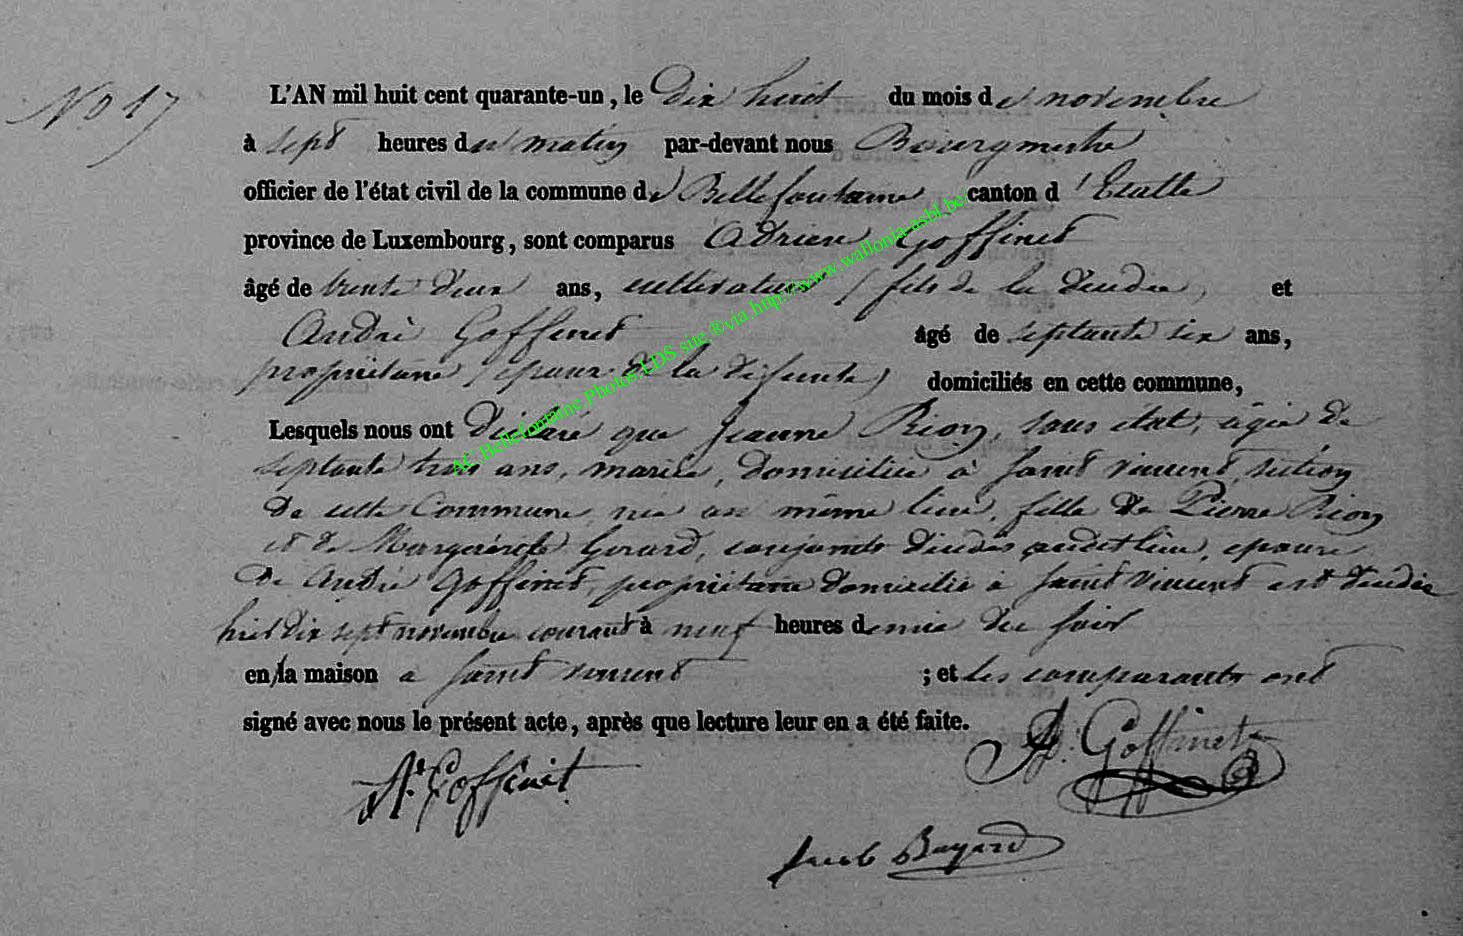 N° 17
L'AN mil huit cent quarante-un, le Dix huit du mois de novembre
à sept heures du matin par-devant nous Bourgmestre
officier de l'état civil de la commune de Bellefontaine canton d'Etalle
province de Luxembourg, sont comparus Adrien Goffinet
âgé de trente deux ans, cultivateur (fils de la décédée) et
André Goffinet âgé de septante six ans,
propriétaire (époux de la défunte) domiciliés en cette commune,
Lesquels nous ont Déclaré que Jeanne Rion, sans état, âgée de
septante trois ans, mariée, domiciliée à Saint Vincent, section
de cette Commune, née au même lieu, fille de Pierre Rion
et de Marguerite Gerard, conjoints décédés audit lieu, épouse
de André Goffinet, propriétaire domicilié à Saint Vincent est décédée
hier Dix sept novembre courant à neuf heures demie du soir
en la maison à Saint Vincent ; et les comparants ont
signé avec nous le présent acte, après que lecture leur en a été faite.
A. Goffinet
A. Goffinet
Jacob Bayard
AC Bellefontaine Photos LDS sur ®via http://www.wallonia-asbl.be/